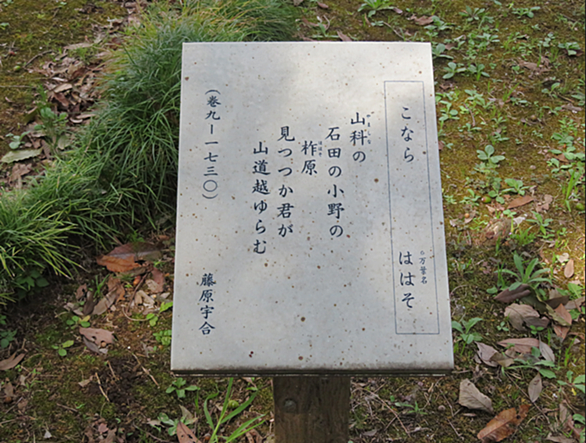 こなら ㋐万葉名 ははそ
山科の
石田の小野の
柞原
見つつか君が
山道越ゆらむ
(巻九ー一七三〇)
藤原宇合